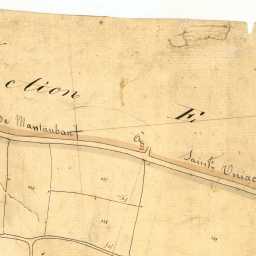 ction E
de Montauban à Saint Uniac